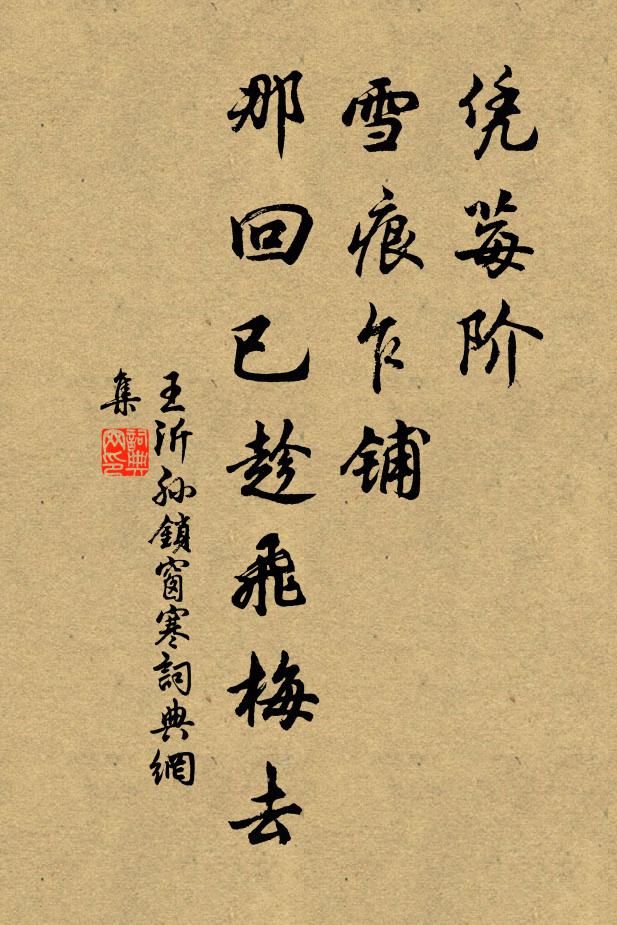 凭莓阶
雪痕乍铺
那回已趁飛梅去
王沂孙鎖窗寒詞典網
集
詞典
网印